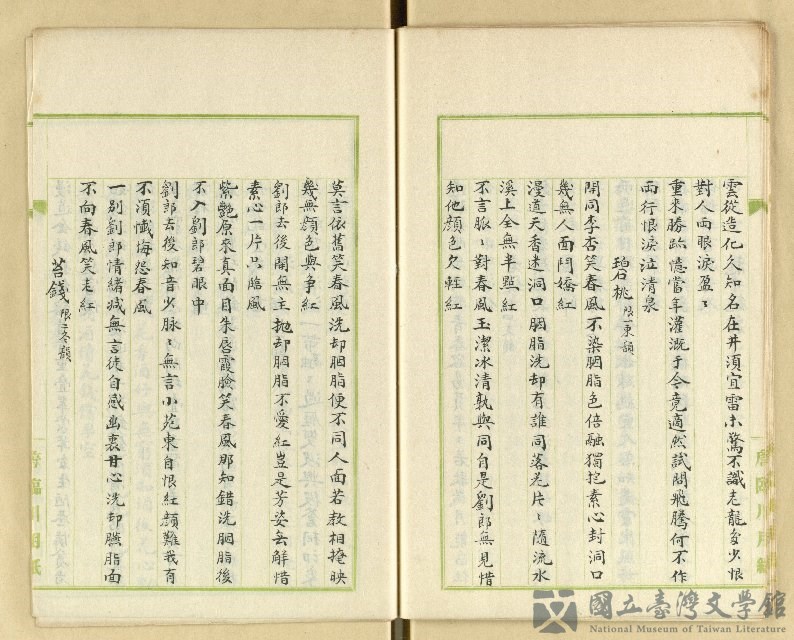 雲從造化久知名在井須宜雷未驚不識老龍多少恨
對人兩眼淚盈〻
重來勝跡憶當年灌溉于今竟適然試問飛騰何不作
兩行恨淚泣清泉
碧桃 限一東韻
開同李杏笑春風不染胭脂色倍融獨抱素心封洞口
幾無人面鬥嬌紅
漫道天香迷洞口胭脂洗却有誰同落花片〻隨流水
溪上全無半點紅
不言脈〻對春風玉潔冰清孰與同自是劉郎無見惜
知他顏色欠輕紅
莫言依舊笑春風洗却胭脂便不同人面若教相掩映
幾無顏色與爭紅
劉郎去後開無主拋却胭脂不愛紅豈是芳姿無解惜
素心一片只臨風
紫艷原來真面目朱唇霞臉笑春風那知錯洗胭脂後
不入劉郎碧眼中
劉郎去後知音少脉〻無言小苑東自恨紅顏難我有
不須懺悔怨春風
一別劉郎情緒減無言徒自感幽裹甘心洗却臙脂面
不向春風笑老紅
苔錢 限二冬韻
詹臨川用紙
國立臺灣文學館
National Museum of Taiwan Literature